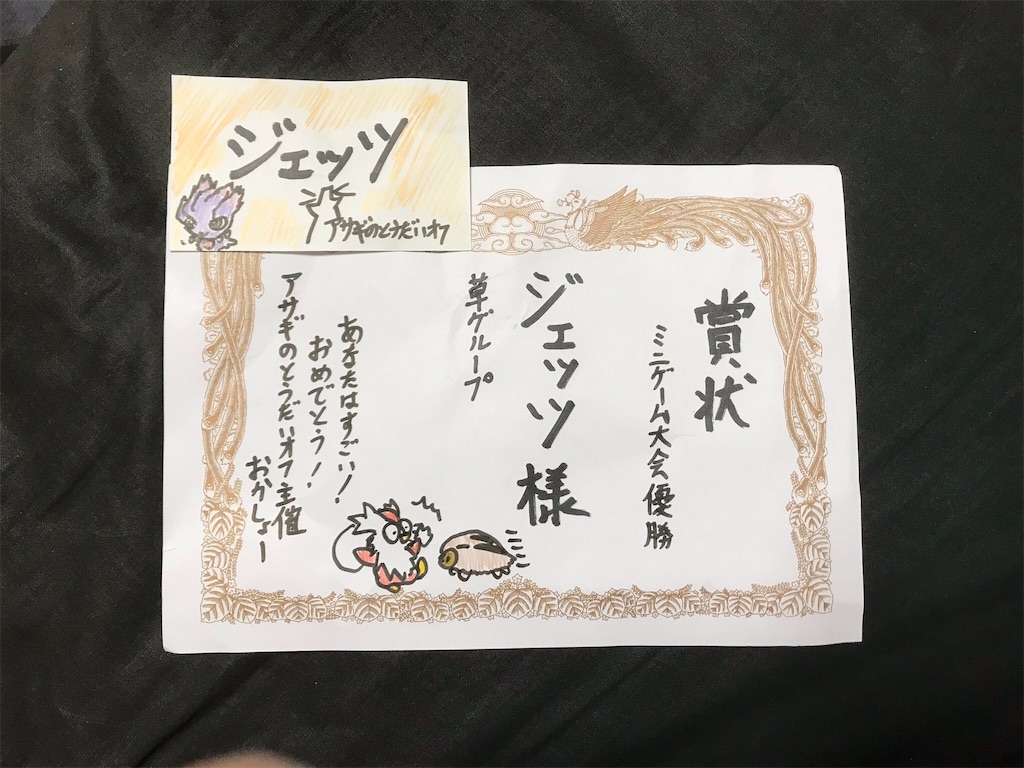 ジェッツ
アサギのとうだいオフ
賞状
ミニゲーム大会優勝
ジェッツ様
草グループ
あなたはすごい！
おめでとう！
アサギのとうだいオフ主催
おかしょー